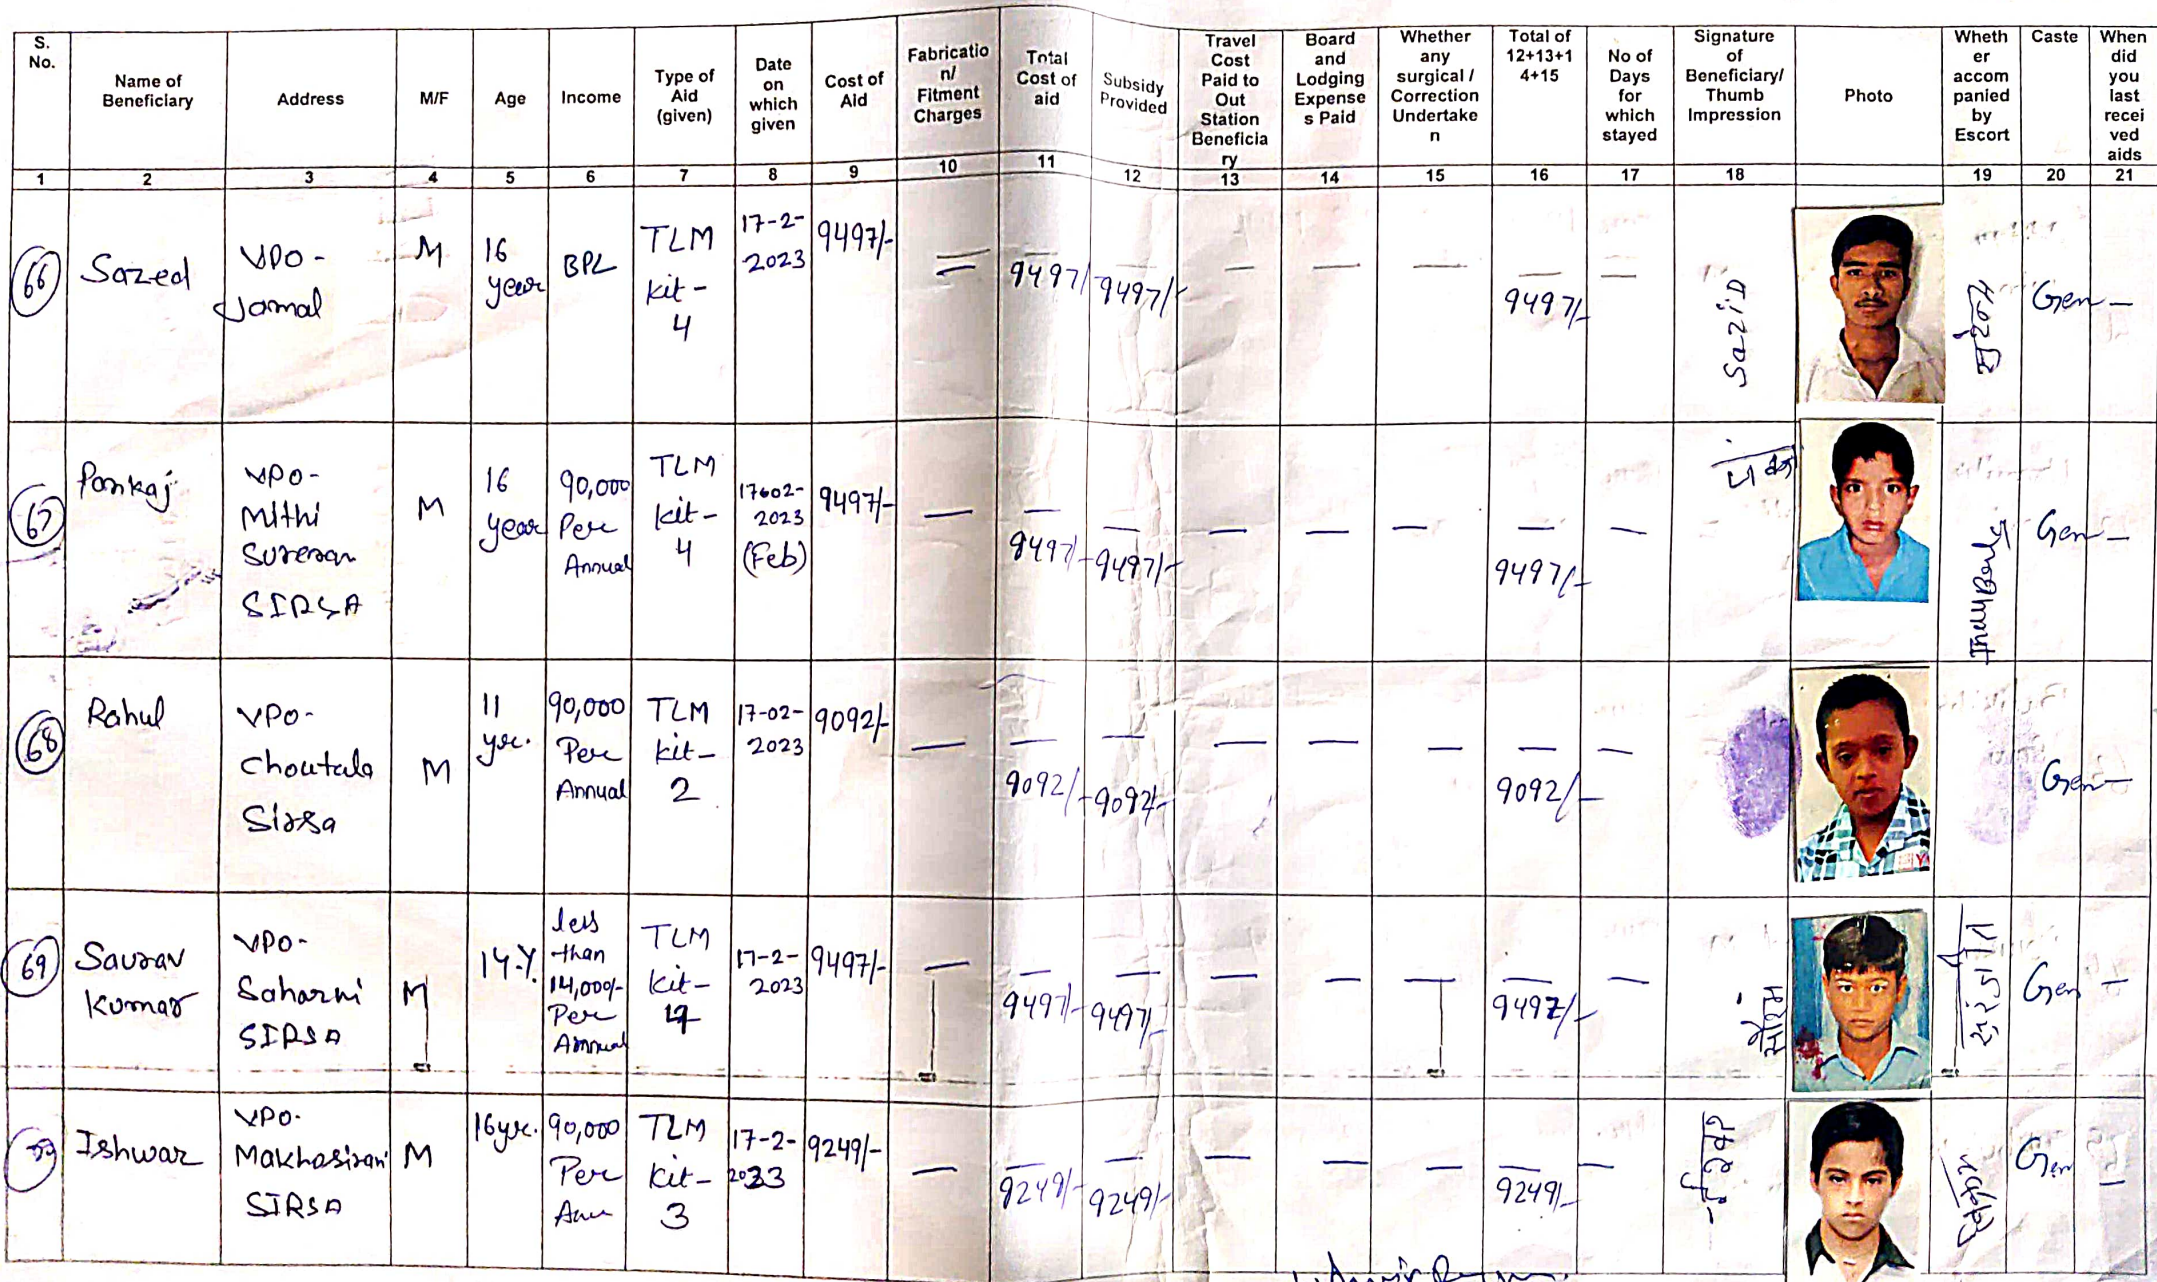 S. No.
Name of Beneficiary
Address
M/F
Age
Income
Type of Aid (given)
Date on which given
Cost of Aid
Fabrication/ Fitment Charges
Total Cost of aid
Subsidy Provided
Travel Cost Paid to Out Station Beneficiary
Board and Lodging Expenses Paid
Whether any surgical / Correction Undertaken
Total of 12+13+14+15
No of Days for which stayed
Signature of Beneficiary/ Thumb Impression
Photo
Whether accompanied by Escort
Caste
When did you last received aids
1 2 3 4 5 6 7 8 9 10 11 12 13 14 15 16 17 18 19 20 21
66 Sazed VPO- Jamal M 16 year BPL TLM Kit- 4 17-2-2023 9497/- — 9497/- 9497/- — — — 9497/- — Sazid Gen —
67 Pankaj VPO- Mithi Sureran SIRSA M 16 year 90,000 Per Annual TLM Kit- 4 17602-2023 (Feb) 9497/- — 9497/- 9497/- — — — 9497/- — Gen —
68 Rahul VPO- Choutala Sirsa M 11 yr. 90,000 Per Annual TLM Kit- 2 17-02-2023 9092/- — 9092/- 9092/- — — — 9092/- — Gen —
69 Saurav Kumar VPO- Saharni SIRSA M 14.Y. less than Per Annual TLM Kit- 4 17-2-2023 9497/- — 9497/- 9497/- — — — 9497/- — सौरभ Gen —
Ishwar VPO- Makhosirani SIRSA M 16yr. 90,000 Per TLM Kit- 3 17-2-2023 9249/- — 9249/- 9249/- — — — 9249/- — Gen —